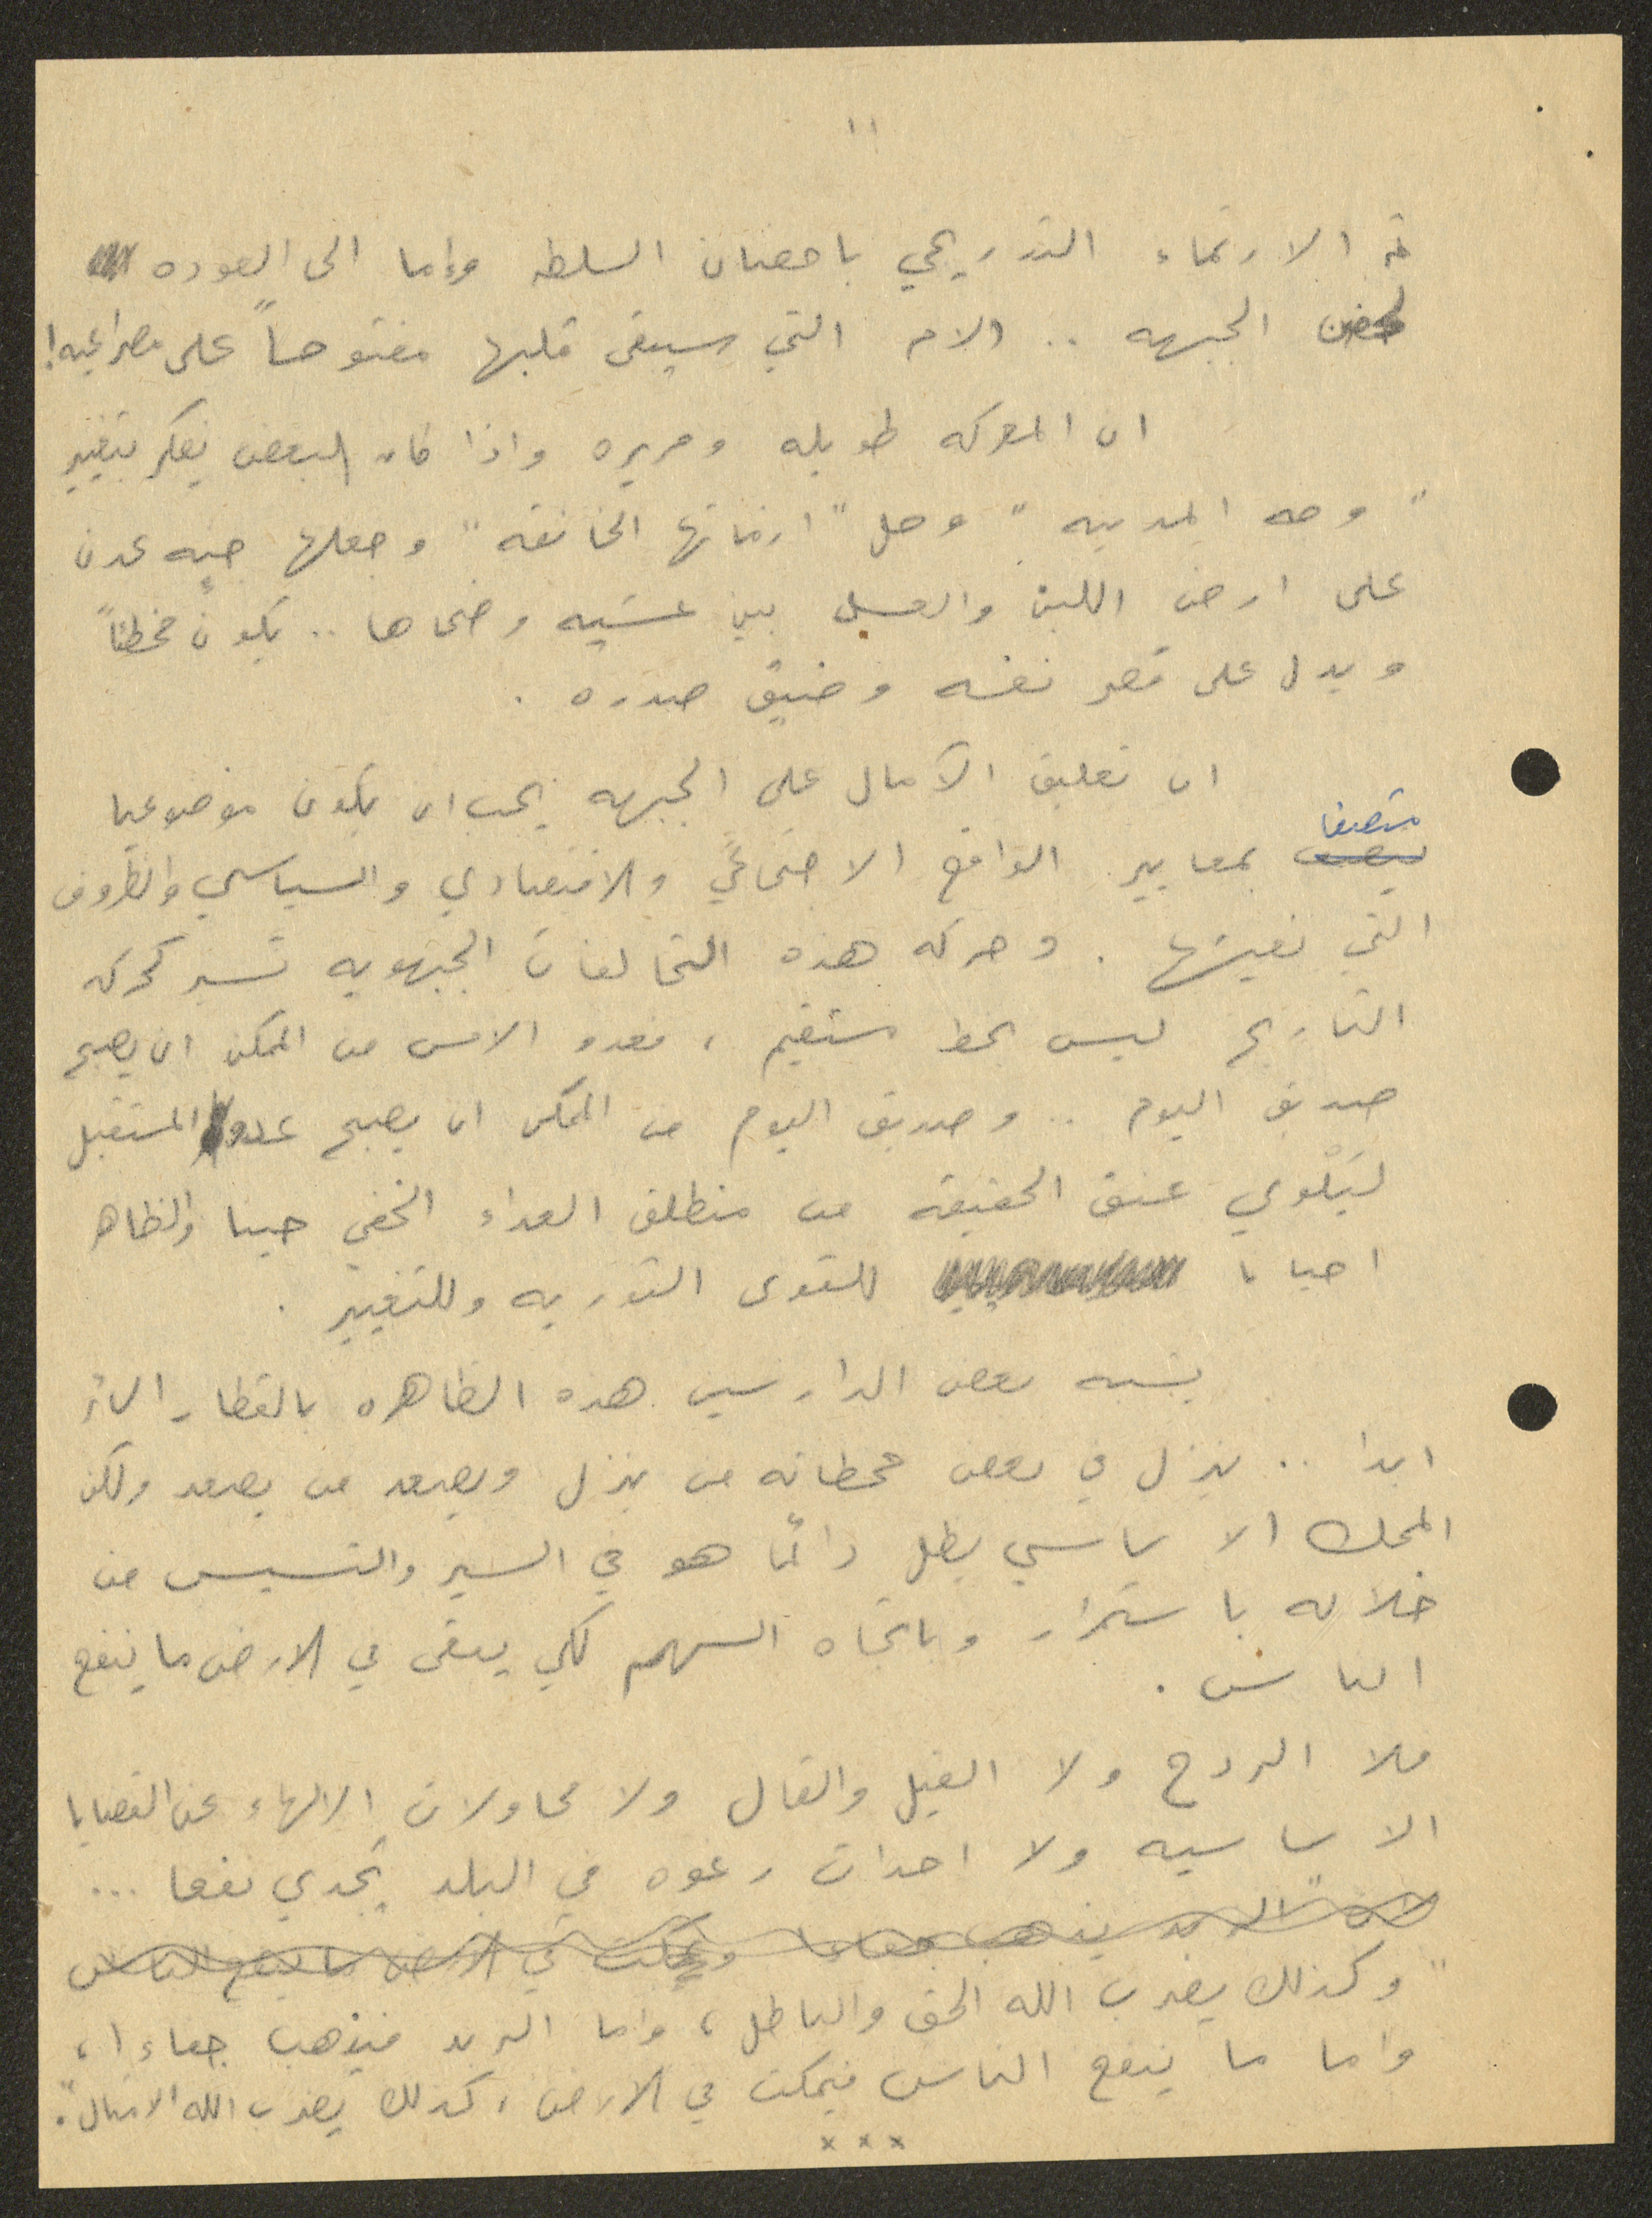 ١١
الارتماء التدريجي باحضان السلطه وإما الى العوده
لحضن الجبهه .. الام التي سيبقى قلبها مفتوحاً على مصراعيه!
ان المعركه طويله ومريره واذا كان البعض يفكر بتغيير
" وجه المدينه " وحل " ازماتها الخانقه " وجعلها جنه عدن
على ارض اللبن والعسل بين عشيه وضحاها .. يكون مخطئاً
ويدل على قصر نفسه وضيق صدره .
ان تعليق الآمال على الجبهه يجب ان يكون موضوعيا
متصفا بمعايير الواقع الاجتماعي والاقتصادي والسياسي والظروف
التي نعيشها . وحركه هذه التحالفات الجبهويه تسير كحركه
التاريخ ليس بخط مستقيم ، فعدو الامس من الممكن ان يصبح
صديق اليوم .. وصديق اليوم من الممكن ان يصبح عدو المستقبل
ليَلْوي عنق الحقيقه من منطلق العداء الخفي حينا والظاهر
احيانا للقوى الثوريه وللتغيير .
يشبه بعض الدارسين هذه الظاهره بالقطار السائر
ابدا .. ينزل في بعض محطاته من ينزل ويصعد من يصعد ولكن
المحك الاساسي يظل دائما هو في السير والتسيس من
خلاله باستمرار وباتجاه السهم لكي يبقى في الارض ما ينفع
الناس .
فلا الردح ولا القيل والقال ولا محاولات الالهاء عن القضايا
الاساسيه ولا احداث رغوه في البلد يجدي نفعا ...
لان " الزبد يذهب جفاءا ويمكث في الارض ما ينفع الناس
" وكذلك يضرب الله الحق والباطل ، واما الزبد فيذهب جفاءا ،
واما ما ينفع الناس فيمكث في الارض ، كذلك يضرب الله الامثال " .
x x x